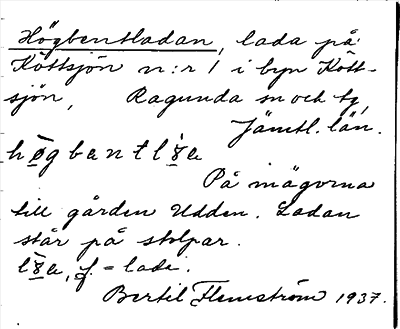 Högbentladan, lada på
Köttsjön n:r 1 i byn Kött-
sjön, Ragunda sn och tg,
Jämtl. län.
hø̱gbantlä̱a
På mägorna
till gården Udden. Ladan
står på stolpar.
f. = lada.
Bertil Flemström 1937.